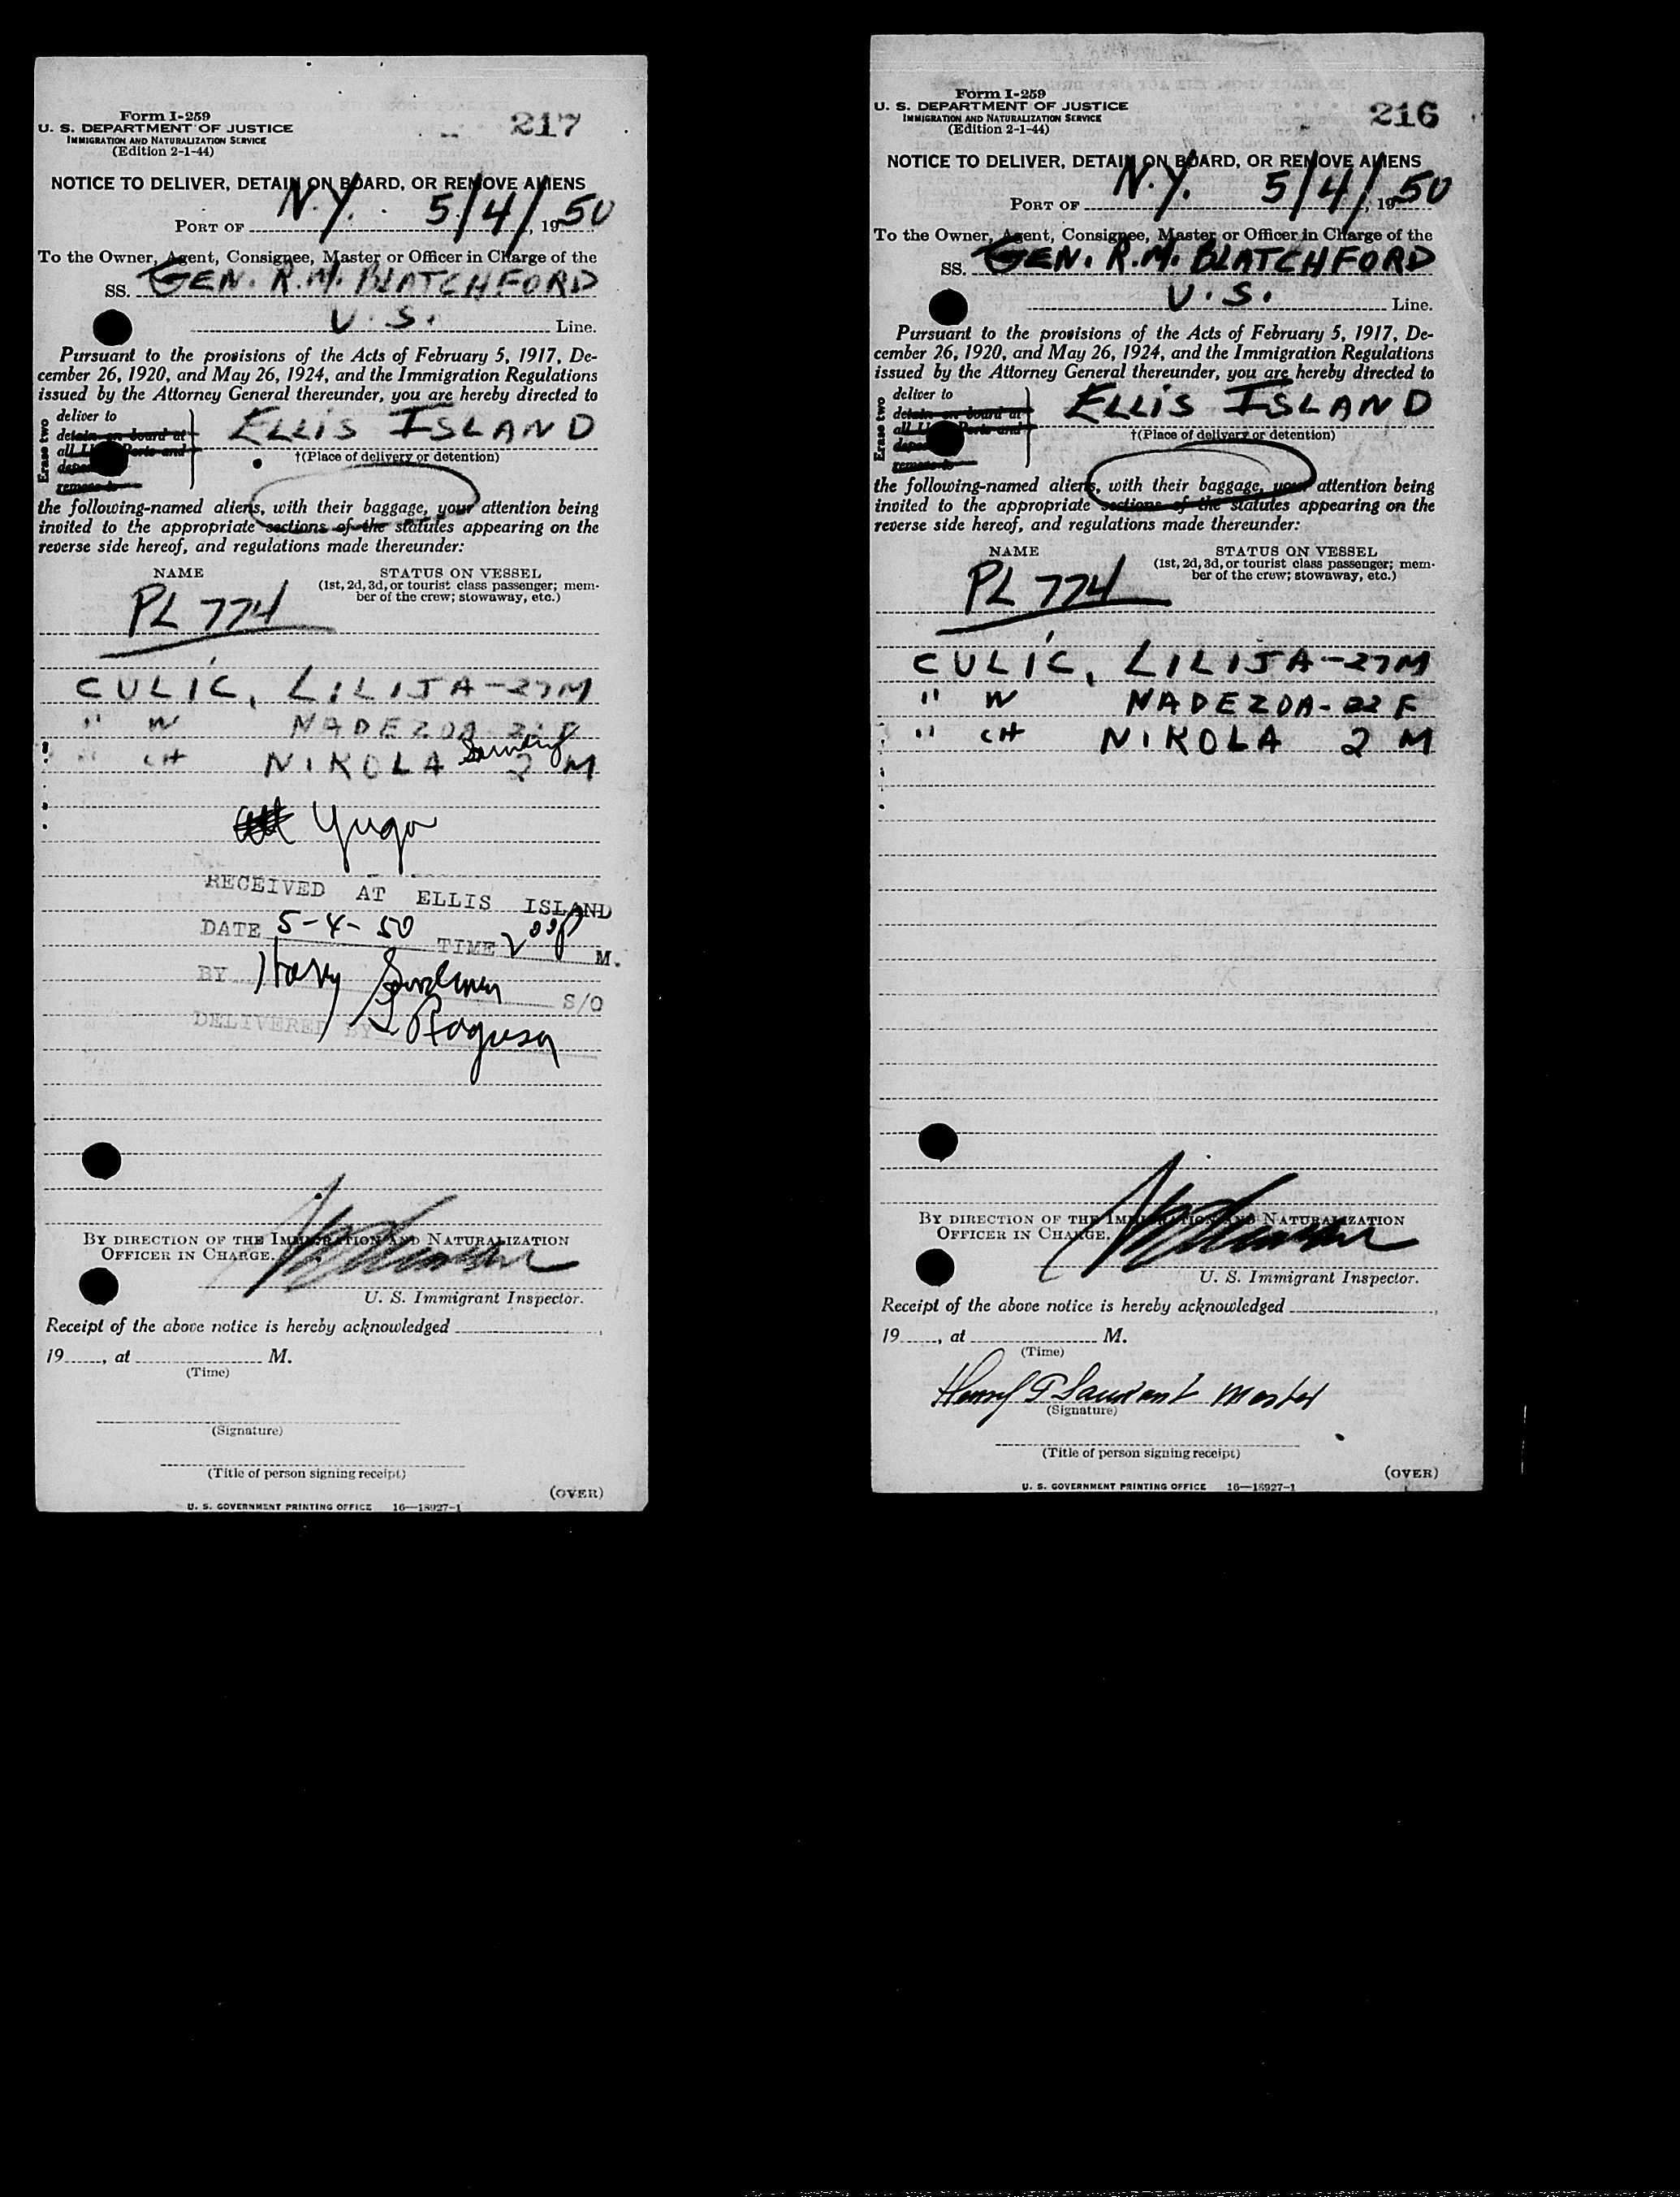 Form I-259
U. S. DEPARTMENT OF JUSTICE
IMMIGRATION AND NATURALIZATION SERVICE
(Edition 2-1-44)
217
NOTICE TO DELIVER, DETAIN ON BOARD, OR REMOVE ALIENS
PORT OF N.Y. 5/4/, 1950
To the Owner, Agent, Consignee, Master or Officer in Charge of the
SS. GEN. R.M. BLATCHFORD
U.S. Line.
Pursuant to the provisions of the Acts of February 5, 1917, De-
cember 26, 1920, and May 26, 1924, and the Immigration Regulations
issued by the Attorney General thereunder, you are hereby directed to
Erase two
deliver to
detain on board at
all Ports and
remove to
ELLIS ISLAND
†(Place of delivery or detention)
the following-named aliens, with their baggage, your attention being
invited to the appropriate sections of the statutes appearing on the
reverse side hereof, and regulations made thereunder:
NAME
STATUS ON VESSEL
(1st, 2d, 3d, or tourist class passenger; mem-
ber of the crew; stowaway, etc.)
PL 774
CULIC, LILIJA-27M
" W NADEZDA 22 F
" CH NIKOLA 2 M
Yugo
RECEIVED AT ELLIS ISLAND
DATE 5-4-50 TIME 2 00 P M.
BY Harry S/O
DELIVERED BY
BY DIRECTION OF THE IMMIGRATION AND NATURALIZATION
OFFICER IN CHARGE.
U. S. Immigrant Inspector.
Receipt of the above notice is hereby acknowledged ,
19 , at M.
(Time)
(Signature)
(Title of person signing receipt)
(OVER)
U. S. GOVERNMENT PRINTING OFFICE 16—18927-1
Form I-259
U. S. DEPARTMENT OF JUSTICE
IMMIGRATION AND NATURALIZATION SERVICE
(Edition 2-1-44)
216
NOTICE TO DELIVER, DETAIN ON BOARD, OR REMOVE ALIENS
PORT OF N.Y. 5/4/, 1950
To the Owner, Agent, Consignee, Master or Officer in Charge of the
SS. GEN. R.M. BLATCHFORD
U.S. Line.
Pursuant to the provisions of the Acts of February 5, 1917, De-
cember 26, 1920, and May 26, 1924, and the Immigration Regulations
issued by the Attorney General thereunder, you are hereby directed to
Erase two
deliver to
detain on board at
all Ports and
remove to
ELLIS ISLAND
†(Place of delivery or detention)
the following-named aliens, with their baggage, your attention being
invited to the appropriate sections of the statutes appearing on the
reverse side hereof, and regulations made thereunder:
NAME
STATUS ON VESSEL
(1st, 2d, 3d, or tourist class passenger; mem-
ber of the crew; stowaway, etc.)
PL 774
CULIC, LILIJA-27M
" W NADEZDA-22 F
" CH NIKOLA 2 M
BY DIRECTION OF THE IMMIGRATION AND NATURALIZATION
OFFICER IN CHARGE.
U. S. Immigrant Inspector.
Receipt of the above notice is hereby acknowledged ,
19 , at M.
(Time)
Master
(Signature)
(Title of person signing receipt)
(OVER)
U. S. GOVERNMENT PRINTING OFFICE 16—18927-1